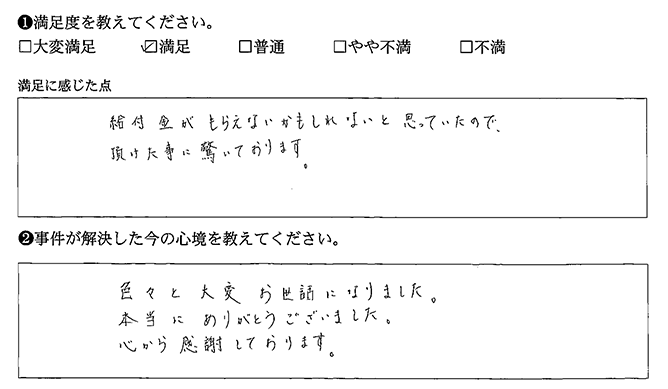 ❶満足度を教えてください。
□大変満足 ☑満足 □普通 □やや不満 □不満
満足に感じた点
給付金がもらえないかもしれないと思っていたので、
頂けた事に驚いております。
❷事件が解決した今の心境を教えてください。
色々と大変お世話になりました。
本当にありがとうございました。
心から感謝しております。